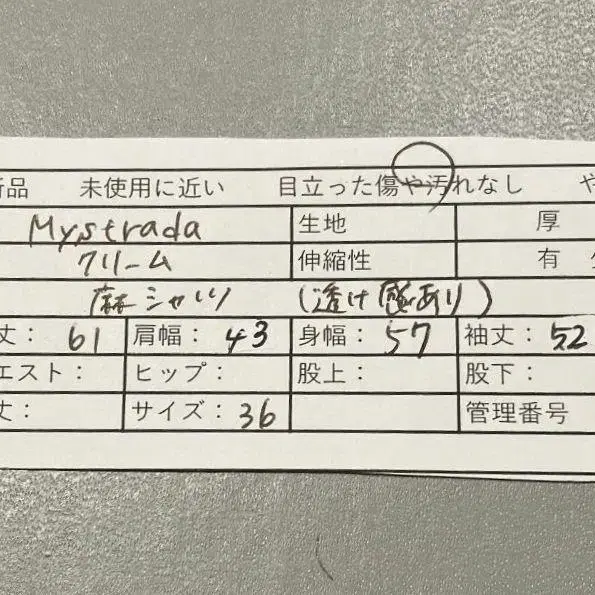 新品 未使用に近い 目立った傷や汚れなし や
Mystrada 生地 厚
クリーム 伸縮性 有
麻シャツ (透け感あり)
丈: 61 肩幅: 43 身幅: 57 袖丈: 52
エスト: ヒップ: 股上: 股下:
丈: サイズ: 36 管理番号